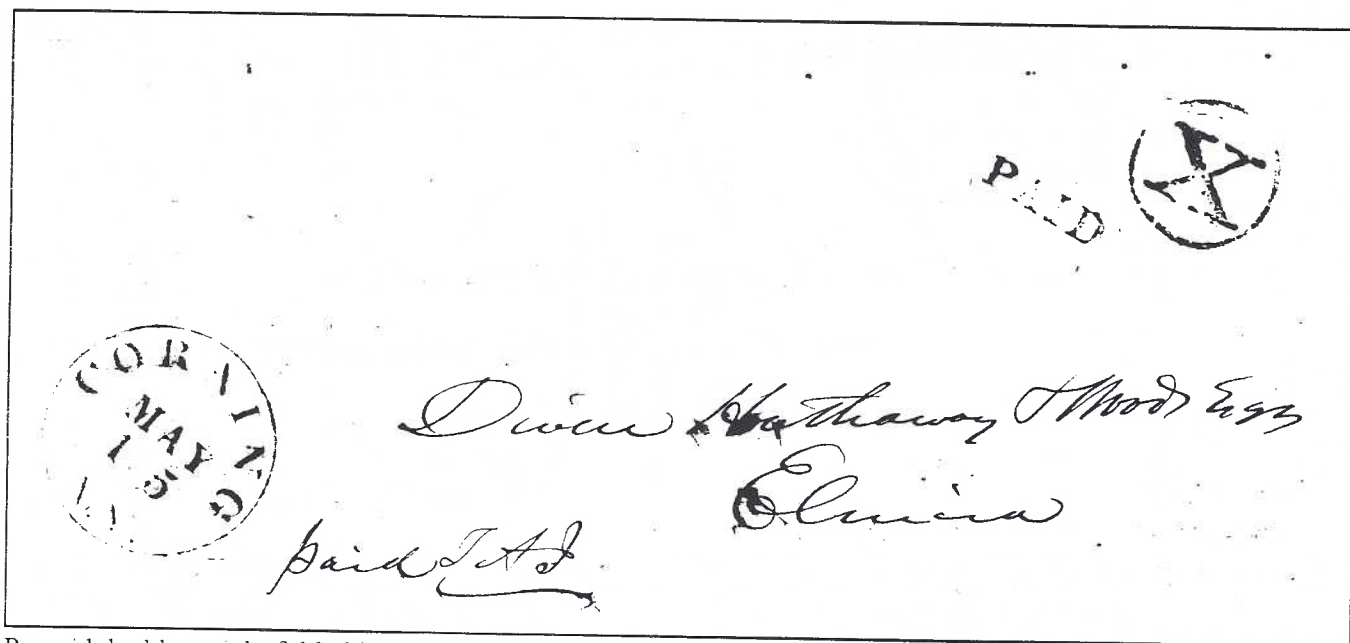 PAID
X
CORNING
MAY
15
Diven Hathaway & Woods Esqs
Elmira
paid